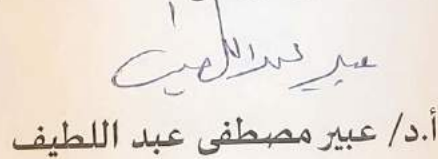 عبير عبد اللطيف
أ.د/ عبير مصطفى عبد اللطيف